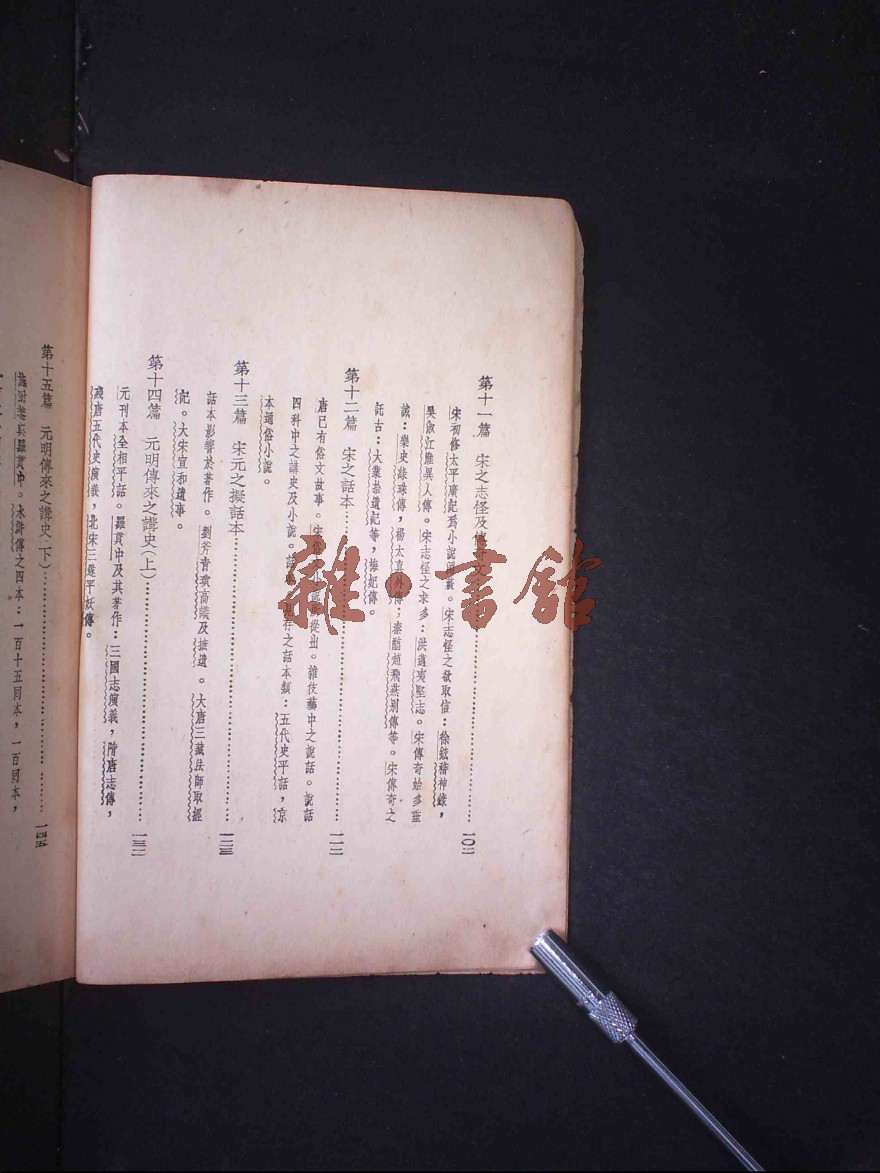 第十一篇　宋之志怪及傳奇文…………一〇二
宋初修太平廣記爲小說淵藪。宋志怪之欲取信：徐鉉稽神錄，
吳淑江淮異人傳。宋志怪之求多：洪邁夷堅志。宋傳奇始多垂
誡：樂史綠珠傳，楊太真外傳；秦醇趙飛燕別傳等。宋傳奇之
託古：大業拾遺記等，梅妃傳。
第十二篇　宋之話本…………一一二
唐已有俗文故事。宋俗文小說從出。雜伎藝中之說話。說話
四科中之講史及小說。話存之話本類：五代史平話，京
本通俗小說。
第十三篇　宋元之擬話本…………一二三
話本影響於著作。劉斧青瑣高議及摭遺。大唐三藏法師取經
記。大宋宣和遺事。
第十四篇　元明傳來之講史（上）…………一三二
元刊本全相平話。羅貫中及其著作：三國志演義，隋唐志傳，
殘唐五代史演義，北宋三遂平妖傳。
第十五篇　元明傳來之講史（下）…………一四五
施耐菴與羅貫中。水滸傳之四本：一百十五回本，一百回本，
雜·書館